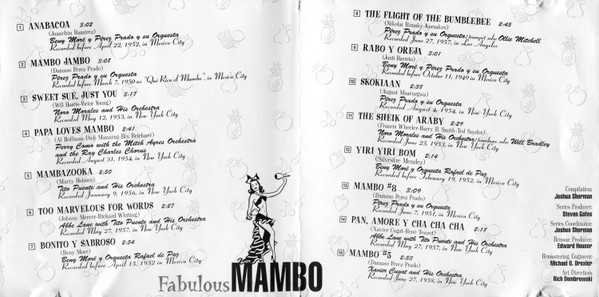 1 ANABACOA 3:02
(Juanchin Ramirez)
Beny Moré y Pérez Prado y su Orquesta
Recorded before April 22, 1952, in Mexico City
2 MAMBO JAMBO 2:35
(Damaso Perez Prado)
Pérez Prado y su Orquesta
Recorded before March 7, 1950 as "Qué Rico el Mambo", in Mexico City
3 SWEET SUE, JUST YOU 2:17
(Will Harris-Victor Young)
Noro Morales and His Orchestra
Recorded May 12, 1953, in New York City
4 PAPA LOVES MAMBO 2:41
(Al Hoffman-Dick Manning-Bix Reichner)
Perry Como with the Mitch Ayres Orchestra
and the Ray Charles Chorus
Recorded August 31, 1954, in New York City
5 MAMBAZOOKA
(Marty Holmes)
Tito Puente and His Orchestra
Recorded January 9, 1956, in New York City
6 TOO MARVELOUS FOR WORDS 2:27
(Johnny Mercer-Richard Whiting)
Abbe Lane with Tito Puente and His Orchestra
Recorded May 27, 1957, in New York City
7 BONITO Y SABROSO 2:34
(Beny Moré)
Beny Moré y Orquesta Rafael de Paz
Recorded before April 15, 1952 in Mexico City
Fabulous MAMBO
8 THE FLIGHT OF THE BUMBLEBEE 2:45
(Nikolai Rimsky-Korsakov)
Pérez Prado y su Orquesta; Ollie Mitchell
Recorded June 27, 1957, in Los Angeles
9 RABO Y OREJA 2:01
(Justi Barreto)
Beny Moré y Pérez Prado y su Orquesta
Recorded before October 11, 1949 in Mexico City
10 SKOKIAAN
(August Msarurgwa)
Pérez Prado y su Orquesta
Recorded August 4, 1954, in New York City
11 THE SHEIK OF ARABY 2:29
(Francis Wheeler-Harry B. Smith-Ted Snyder)
Noro Morales and His Orchestra; Will Bradley
Recorded June 23, 1953, in New York City
12 YIRI YIRI BOM 2:14
(Silvestre Mendez)
Beny Moré y Orquesta Rafael de Paz
Recorded before January 19, 1952, in Mexico City
13 MAMBO #8 3:09
(Damaso Perez Prado)
Pérez Prado y su Orquesta
Recorded June 7, 1951, in Mexico City
14 PAN, AMOR Y CHA CHA CHA 2:17
(Xavier Cugat-René Touzet)
Abbe Lane with Tito Puente and His Orchestra
Recorded May 27, 1957, in New York City
15 MAMBO #5 2:53
(Damaso Perez Prado)
Xavier Cugat and His Orchestra
Recorded June 27, 1958, in New York City
Compilation:
Joshua Sherman
Series Producer:
Steven Gates
Series Coordinator:
Joshua Sherman
Reissue Producer:
Edward Houser
Remastering Engineer:
Michael O. Drexler
Art Direction:
Rich Dombrowski